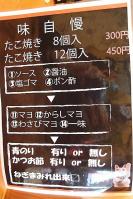 味自慢
たこ焼き 8個入 300円
たこ焼き 12個入 450円
①ソース ②醤油
③塩ゴマ ④ポン酢
⑪マヨ ⑫からしマヨ
⑬わさびマヨ ⑭一味
青のり 有り or 無し
かつお節 有り or 無し
ねぎまみれ出来